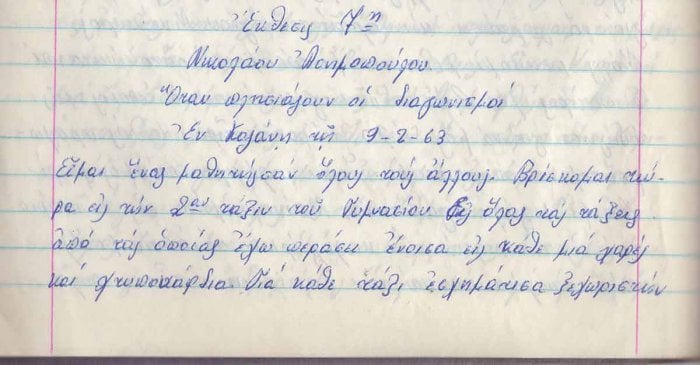 Ἔκθεσις 7η
Νικολάου Ἀσημοπούλου
Ὅταν πλησιάζουν οἱ διαγωνισμοί
Ἐν Κοζάνῃ τῇ 9-2-63
Εἶμαι ἕνας μαθητής σάν ὅλους τούς ἄλλους. Βρίσκομαι τώ-
ρα εἰς τήν 2αν τάξιν τοῦ Γυμνασίου Εἰς ὅλας τάς τάξεις
ἀπό τάς ὁποίας ἔχω περάσει ἔνοισα εἰς κάθε μιά χαρές
καί χτυποκάρδια. Γιά κάθε τάξι ἐσχημάτισα ξεχωριστήν